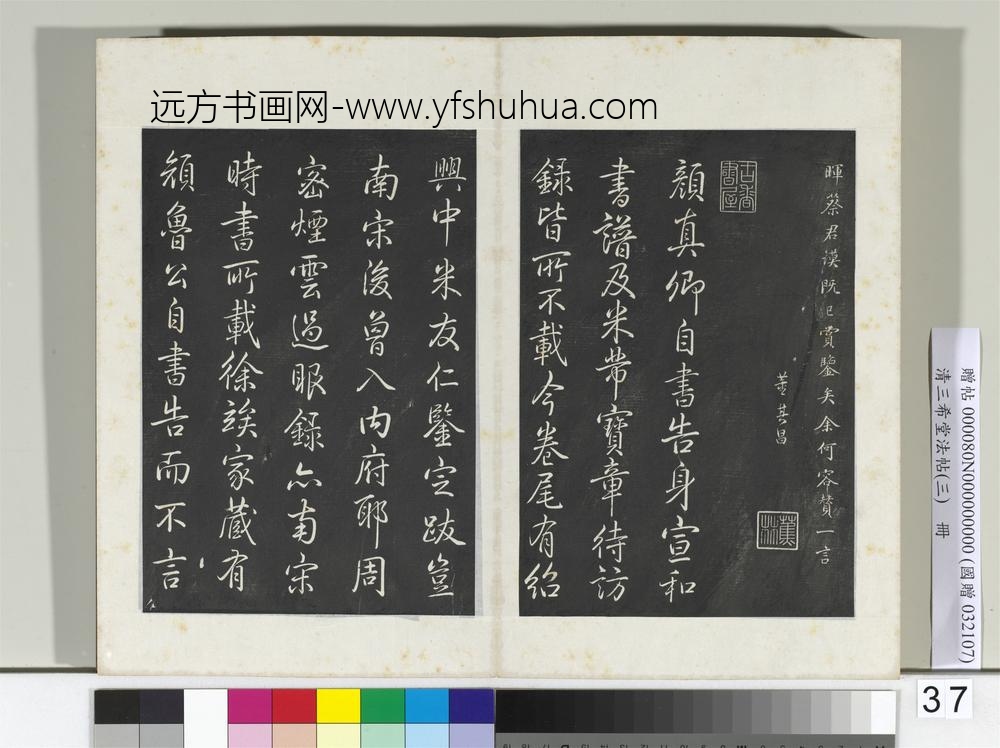 远方书画网-www.yfshuhua.com
暉蔡君謨既已賞鑒矣余何容贅一言
董其昌
顏真卿自書告身宣和
書譜及米芾寶章待訪
錄皆所不載今卷尾有紹
興中米友仁鑒定跋豈
南宋後曾入內府耶周
密煙雲過眼錄亦南宋
時書所載徐竢家藏有
顏魯公自書告而不言
贈帖 000080N000000000 (國贈 032107)
清三希堂法帖(三) 冊
37